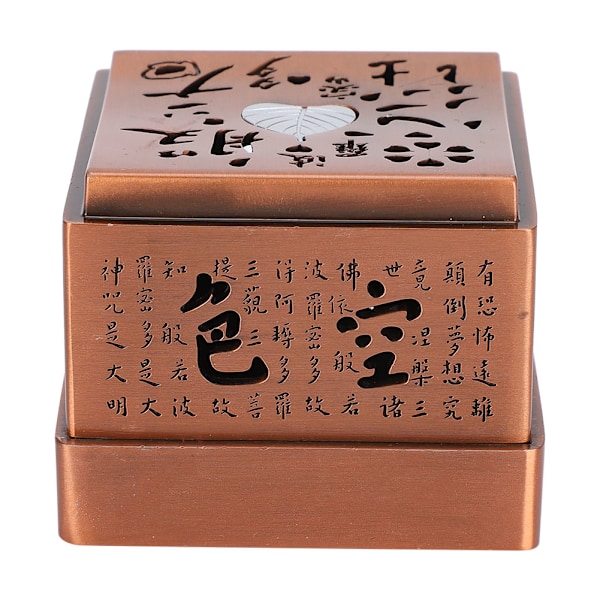 波羅密多
空色
有恐怖遠離
顛倒夢想究
竟涅槃三
世諸
佛依般若
波羅密多故
得阿耨多羅
三藐三菩
提故
知般若波
羅密多是大
神咒是大明